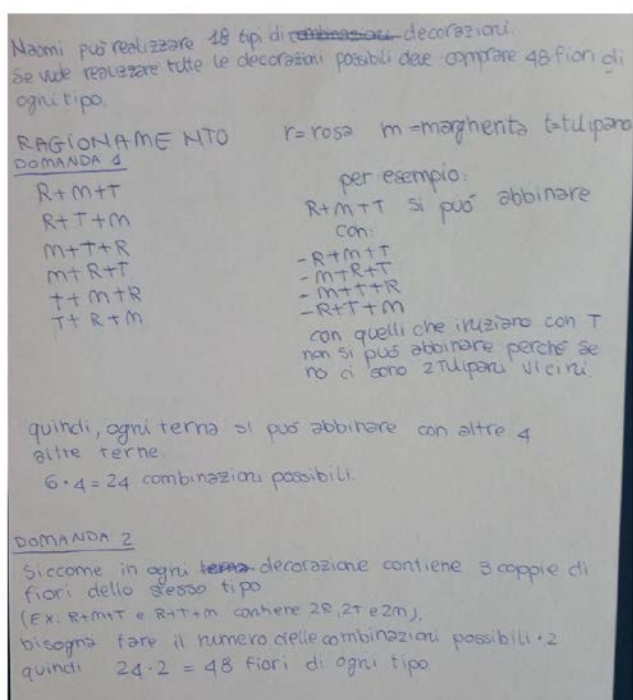 Naomi può realizzare 18 tipi di combinazioni decorazioni.
Se vuole realizzare tutte le decorazioni possibili deve comprare 48 fiori di
ogni tipo.
RAGIONAMENTO r=rosa m=margherita t=tulipano
DOMANDA 1
R+M+T
R+T+M
M+T+R
M+R+T
T+M+R
T+R+M
per esempio:
R+M+T si può abbinare
con:
-R+M+T
-M+R+T
-M+T+R
-R+T+M
con quelli che iniziano con T
non si può abbinare perché se
no ci sono 2 tulipani vicini.
quindi, ogni terna si può abbinare con altre 4
altre terne.
6·4=24 combinazioni possibili.
DOMANDA 2
Siccome in ogni terna decorazione contiene 3 coppie di
fiori dello stesso tipo
(Ex: R+M+T e R+T+M contiene 2R, 2T e 2M),
bisogna fare il numero delle combinazioni possibili·2
quindi 24·2 = 48 fiori di ogni tipo